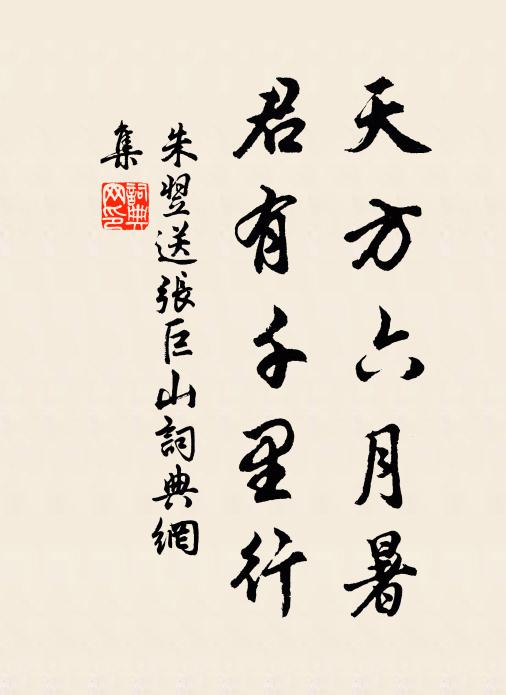 天方六月暑
君有千里行
朱翌送張巨山詞典網
集
詞典
网印